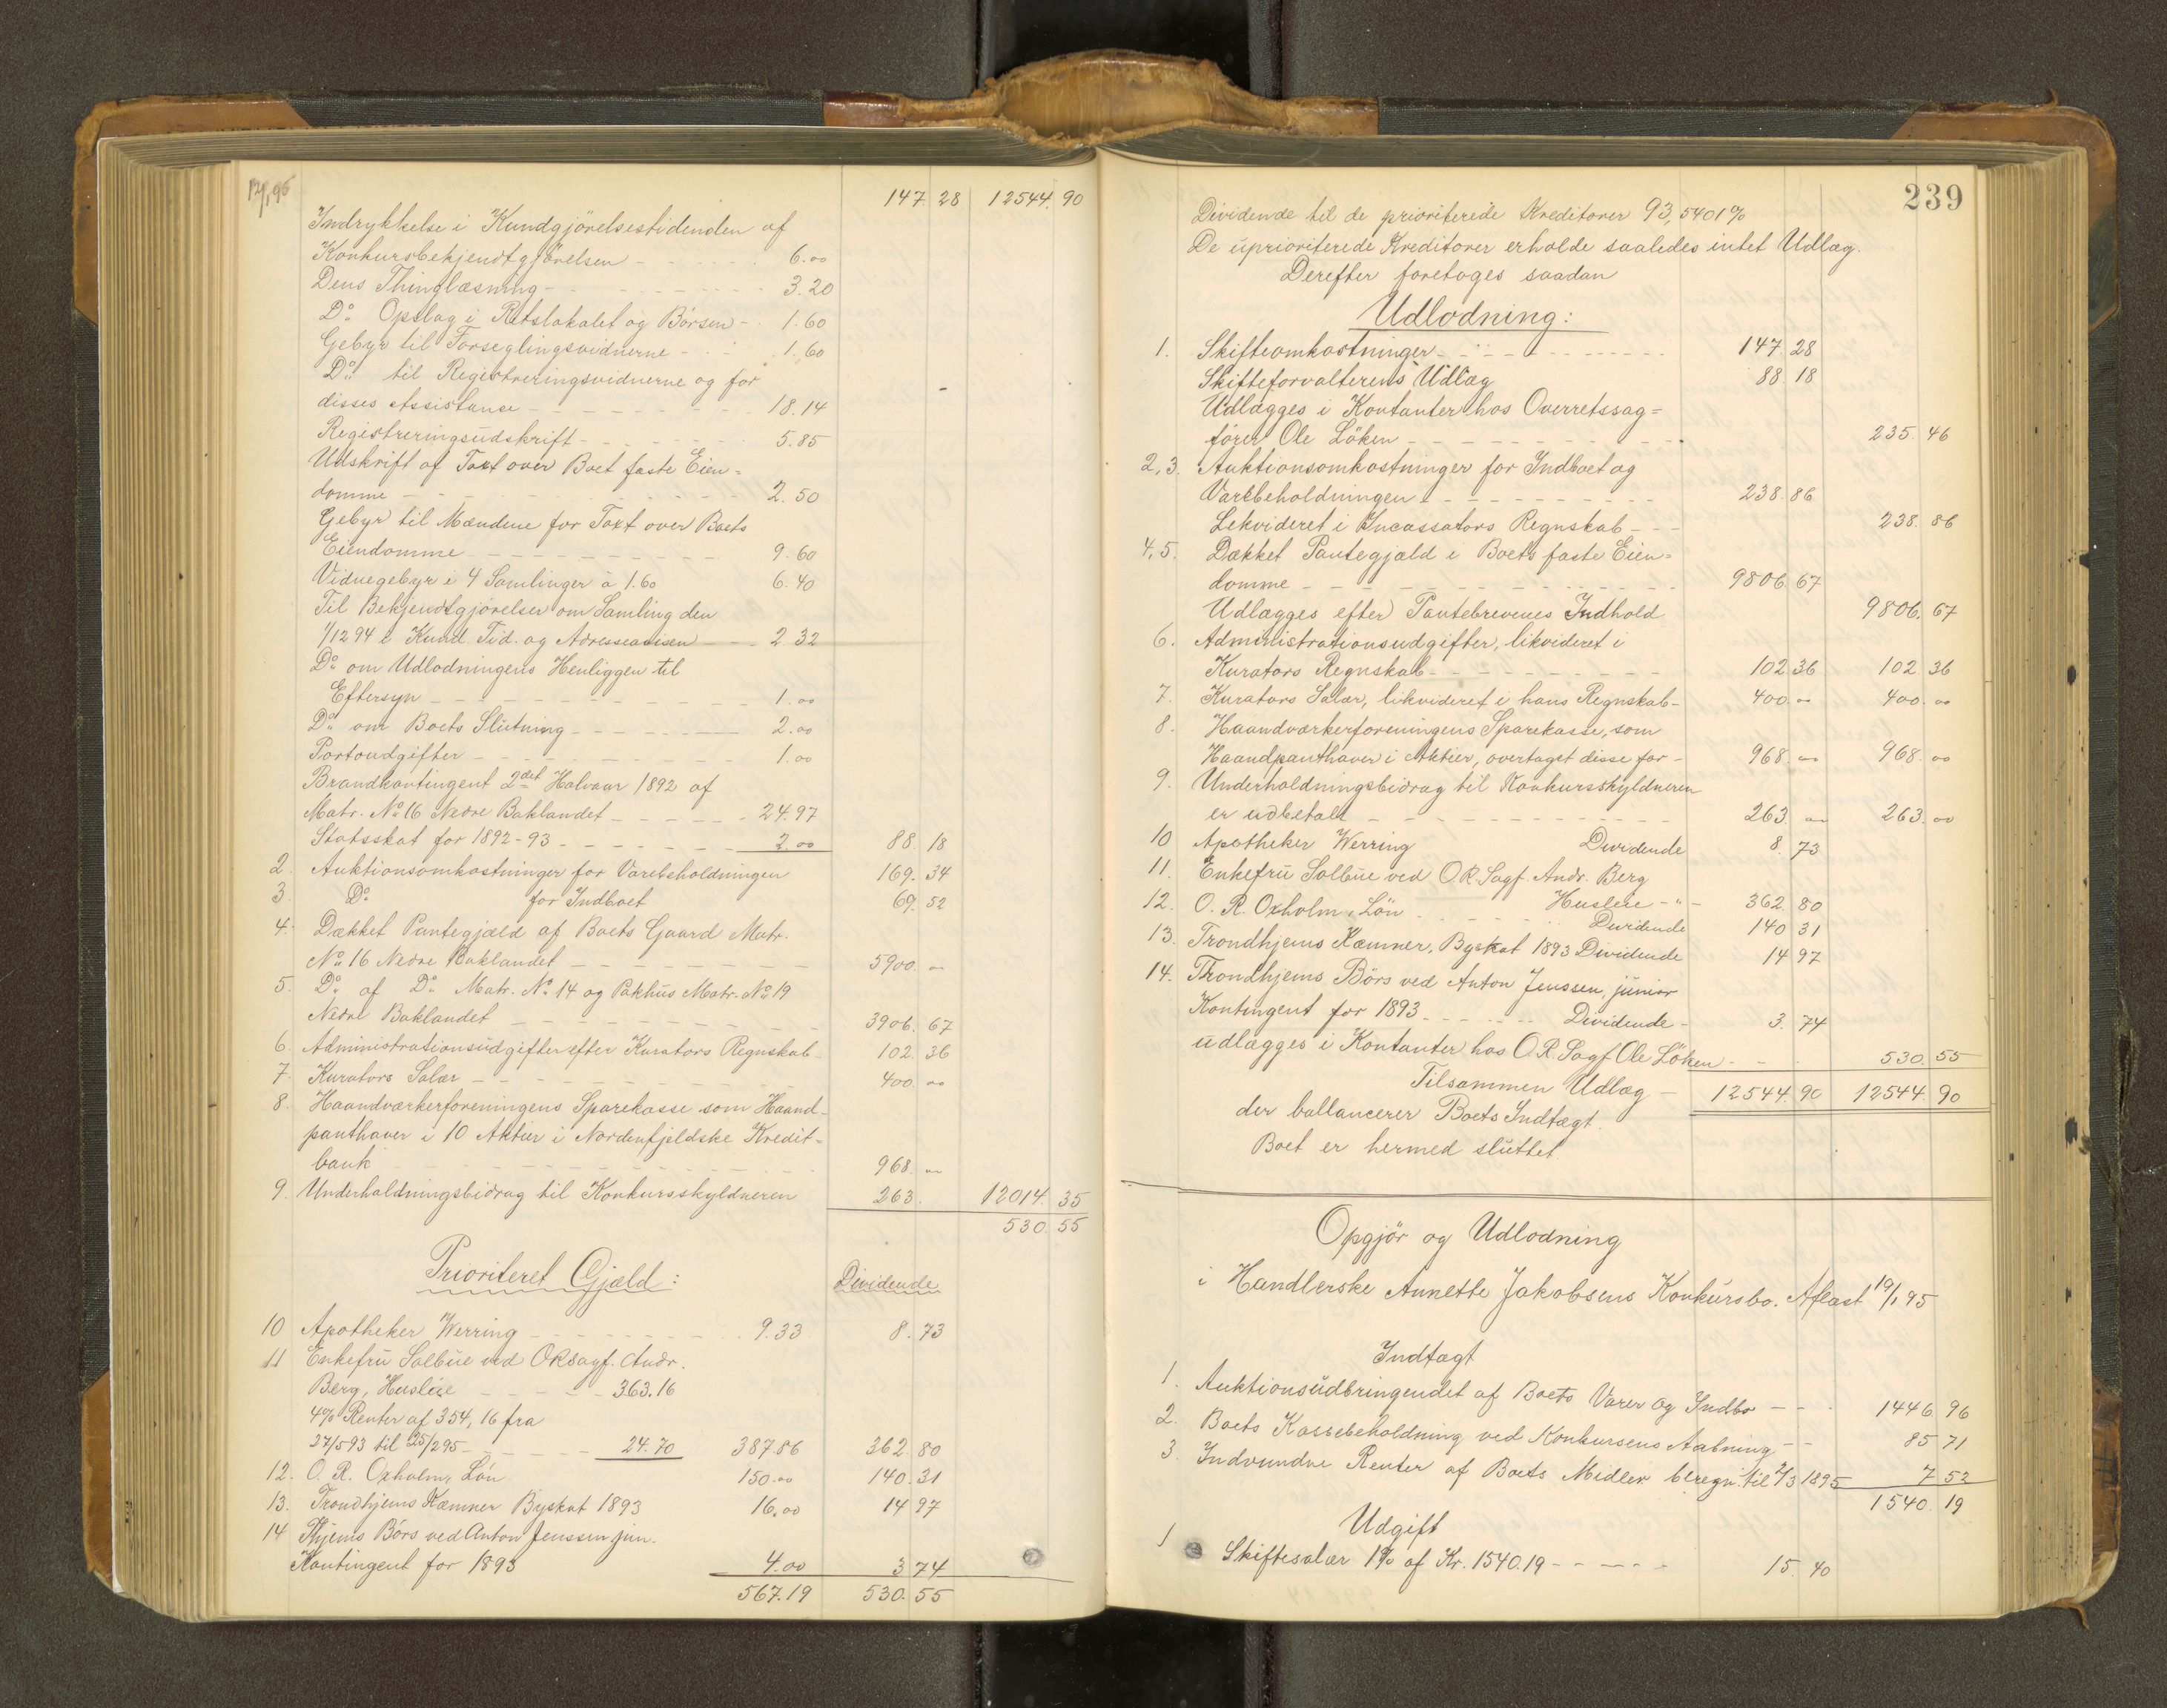 147 28 12544. 90
Indrykkelse i Kundgjörelsestidenden af
Konkursbekjendtgjörelsen - - - - - 6.00
Dens Thinglæsning - - - - - - - 3.20
Do. Opslag i Retslokalet og Börsen - 1.60
Gebyr til Forseglingsvidnerne - - - 1.60
Do. til Registreringsvidnerne og for
disses Assistance - - - - - - - 18.14
Registreringsudskrift - - - - - - 5.85
Udskrift af Taxt over Boet faste Eien-
domme - - - - - - - - - 2.50
Gebyr til Mændene for Taxt over Boets
Eiendomme - - - - - - - - - 9.60
Vidnegebyr i 4 Samlinger à 1.60 6.40
Til Bekjendtgjörelser om Samling den
1/12 94 i Kund. Tid. og Adresseavisen - - 2 32
Do. om Udlodningens Henliggen til
Eftersyn - - - - - - - - - 1.00
Do. om Boets Slutning - - - - - - 2.00
Portoudgifter - - - - - - - - 1.00
Brandkontingent 2det Halvaar 1892 af
Matr. No. 16 Nedre Baklandet - - - - - 24.97
Statsskat for 1892-93 - - - - - - - 2.00 88. 18
2. Auktionsomkostninger for Varebeholdningen 169. 34
3. Do. for Indboet 69. 52
4. Dækket Pantegjæld af Boets Gaard Matr.
No. 16 Nedre Baklandet - - - - - - - 5900. 00
5. Do. af Do. Matr. No. 14 og Pakhus Matr. No. 19
Nedre Baklandet - - - - - - - - - 3906. 67
6. Administrationsudgifter efter Kurators Regnskab - 102. 36
7. Kurators Salær - - - - - - - 400. 00
8. Haandværkerforeningens Sparekasse som Haand-
panthaver i 10 Aktier i Nordenfjeldske Kredit-
bank - - - - - - - - - - 968. 00
9. Underholdningsbidrag til Konkursskyldneren 263. 12014. 35
530. 55
Prioriteret Gjæld: Dividende
10 Apotheker Werring - - - - - - - 9.33 8. 73
11 Enkefru Solbue ved ORSagf. Andr.
Berg, Husleie - - - - - 363.16
4% Renter af 354,16 fra
27/5 93 til 25/2 95 - - - - - 24.70 387.86 362. 80
12. O. R. Oxholm, Lön 150.00 140. 31
13. Trondhjems Kæmner Byskat 1893 16.00 14 97
14 Thjems Börs ved Anton Jenssen jun.
Kontingent for 1893 4.00 3 74
567.19 530. 55
239
Dividende til de prioriterede Kreditorer 93,5401%
De uprioriterede Kreditorer erholde saaledes intet Udlæg.
Derefter foretages saadan
Udlodning:
1. Skifteomkostninger - - - - - - - - 147. 28
Skifteforvalterens Udlæg 88. 18
Udlægges i Kontanter hos Overretssag-
förer Ole Löken - - - - - - - - - 235. 46
2,3. Auktionsomkostninger for Indboet og
Varebeholdningen - - - - - - - - 238. 86
Lekvideret i Incassators Regnskab - - - 238. 86
4,5. Dækket Pantegjæld i Boets faste Eien-
domme - - - - - - - - - - 9806. 67
Udlægges efter Pantebrevenes Indhold 9806. 67
6. Administrationsudgifter, likvideret i
Kurators Regnskab - - - - - - - - 102. 36 102. 36
7. Kurators Salær, likvideret i hans Regnskab - 400. 00 400. 00
8. Haandværkerforeningens Sparekasse, som
Haandpanthaver i Aktier, overtaget disse for - 968. 00 968. 00
9. Underholdningsbidrag til Konkursskyldneren
er udbetalt - - - - - - - - - - 263. 00 263. 00
10 Apotheker Werring Dividende 8. 73
11. Enkefru Solbue ved O.R.Sagf. Andr. Berg
Husleie - " - 362. 80
12. O. R. Oxholm, Lön - - - - - Dividende 140 31
13. Trondhjems Kæmner, Byskat 1893 Dividende 14 97
14. Trondhjems Börs ved Anton Jenssen, junior
Kontingent for 1893 - - - - - Dividende - 3. 74
udlægges i Kontanter hos O.R.Sagf. Ole Löken - - 530. 55
Tilsammen Udlæg - 12544. 90 12544. 90
der ballancerer Boets Indtægt.
Boet er hermed sluttet.
Opgjör og Udlodning
i Handlerske Annette Jakobsens Konkursbo. Aflæst 19/1 95
Indtægt
1. Auktionsudbringendet af Boets Varer og Indbo - - - 1446. 96
2. Boets Kassebeholdning ved Konkursens Aabning - - 85 71
3. Indvundne Renter af Boets Midler beregn. til 1/3 1895 7 52
1540. 19
Udgift
1 Skiftesalær 1% af Kr. 1540.19 - - - - - 15. 40